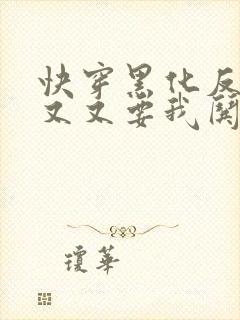 快穿黑化反
又又要我关
琼华